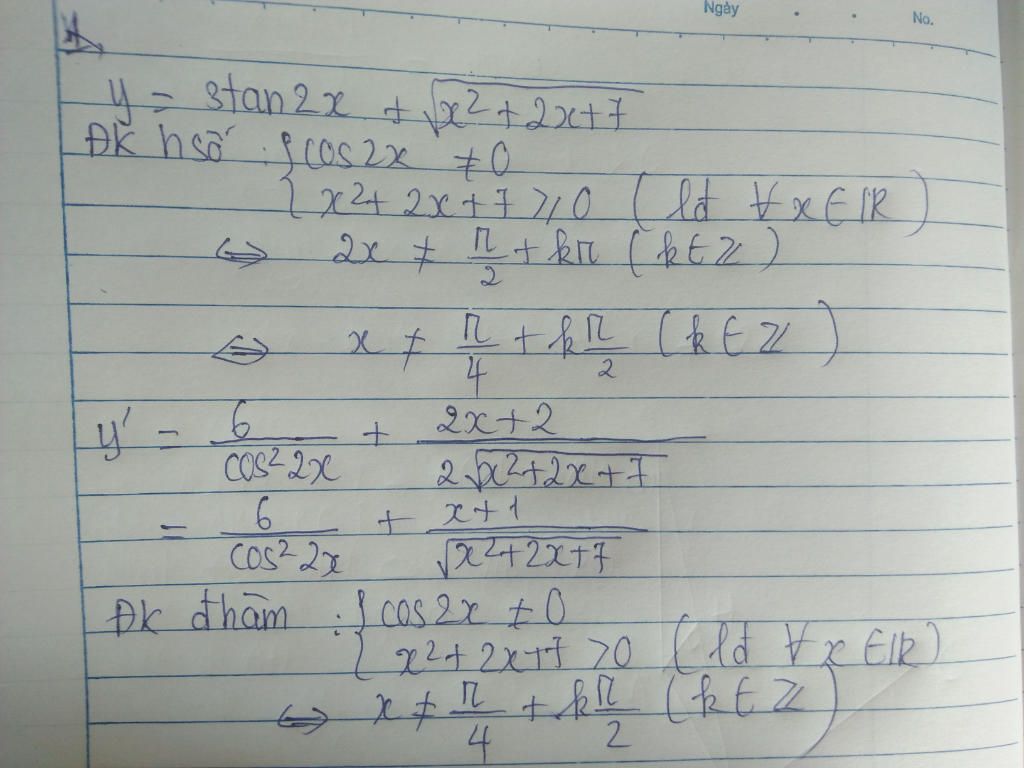 Ngày . . No.
y = 3tan2x + √(x²+2x+7)
ĐK hsố : { cos2x ≠ 0
{ x²+2x+7 ≥ 0 ( lđ ∀x∈ℝ )
⇔ 2x ≠ π/2 + kπ ( k∈ℤ )
⇔ x ≠ π/4 + kπ/2 ( k∈ℤ )
y' = 6/cos²2x + (2x+2)/(2√(x²+2x+7))
= 6/cos²2x + (x+1)/√(x²+2x+7)
ĐK đhàm : { cos2x ≠ 0
{ x²+2x+7 >0 ( lđ ∀x∈ℝ )
⇔ x ≠ π/4 + kπ/2 ( k∈ℤ )